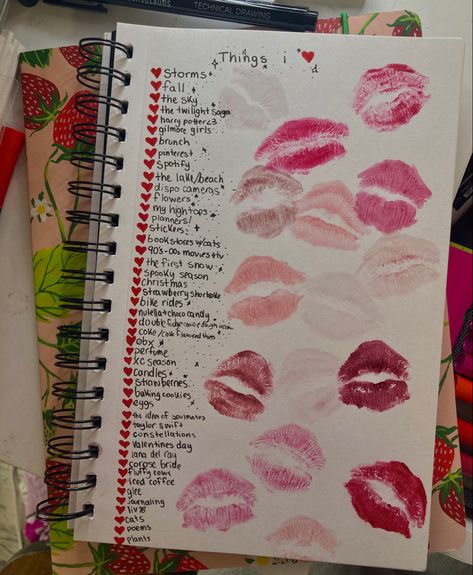 TECHNICAL DRAWING
Things i ♥'d
storms
fall
the sky
the twilight saga
harry potter<3
gilmore girls
brunch
pinterest
spotify
the lake/beach
dispo cameras
flowers
my hightops
planners/
stickers
bookstores w/cats
90's-00s movies ttv
the first snow
spooky season
christmas
strawberry shortcake
bike rides
nutella + choco candy
double fudge cookie dough
coke/coke flavored thing
obx
perfume
xc season
candles
strawberries
baking cookies
eggs
the idea of soulmates
taylor swift
constellations
valentines day
lana del ray
corpse bride
fluffy cows
iced coffee
glee
journaling
cats
poems
plants